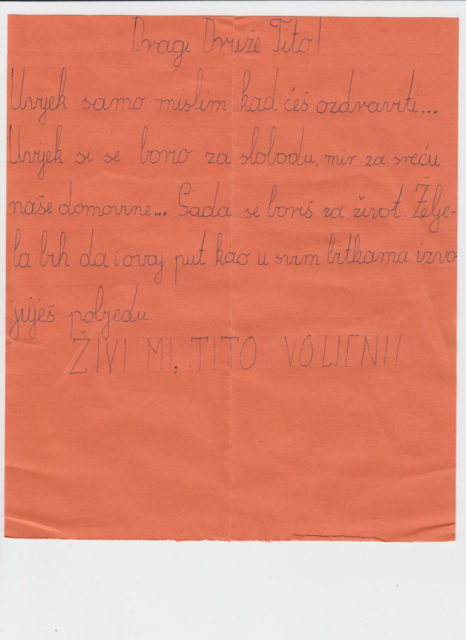 Dragi Druže Tito!
Uvijek samo mislim kad ćeš ozdraviti...
Uvijek si se borio za slobodu, mir za sreću
naše domovine... Sada se boriš za život. Želje-
la bih da i ovaj put kao u svim bitkama izvo-
juješ pobjedu.
ŽIVI MI, TITO VOLJENI!